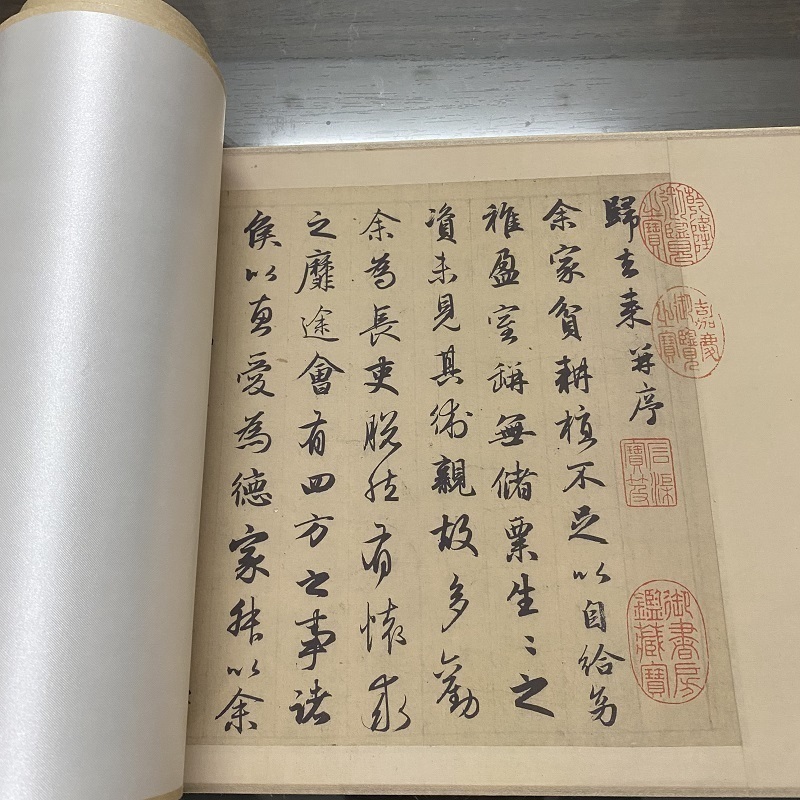 歸去來并序
余家貧耕植不足以自給幼
稚盈室缾無儲粟生〻之
資未見其術親故多勸
余為長吏脫然有懷求
之靡途會有四方之事諸
侯以惠愛為德家叔以余
乾隆御覽之寶
嘉慶御覽之寶
石渠寶笈
御書房鑑藏寶